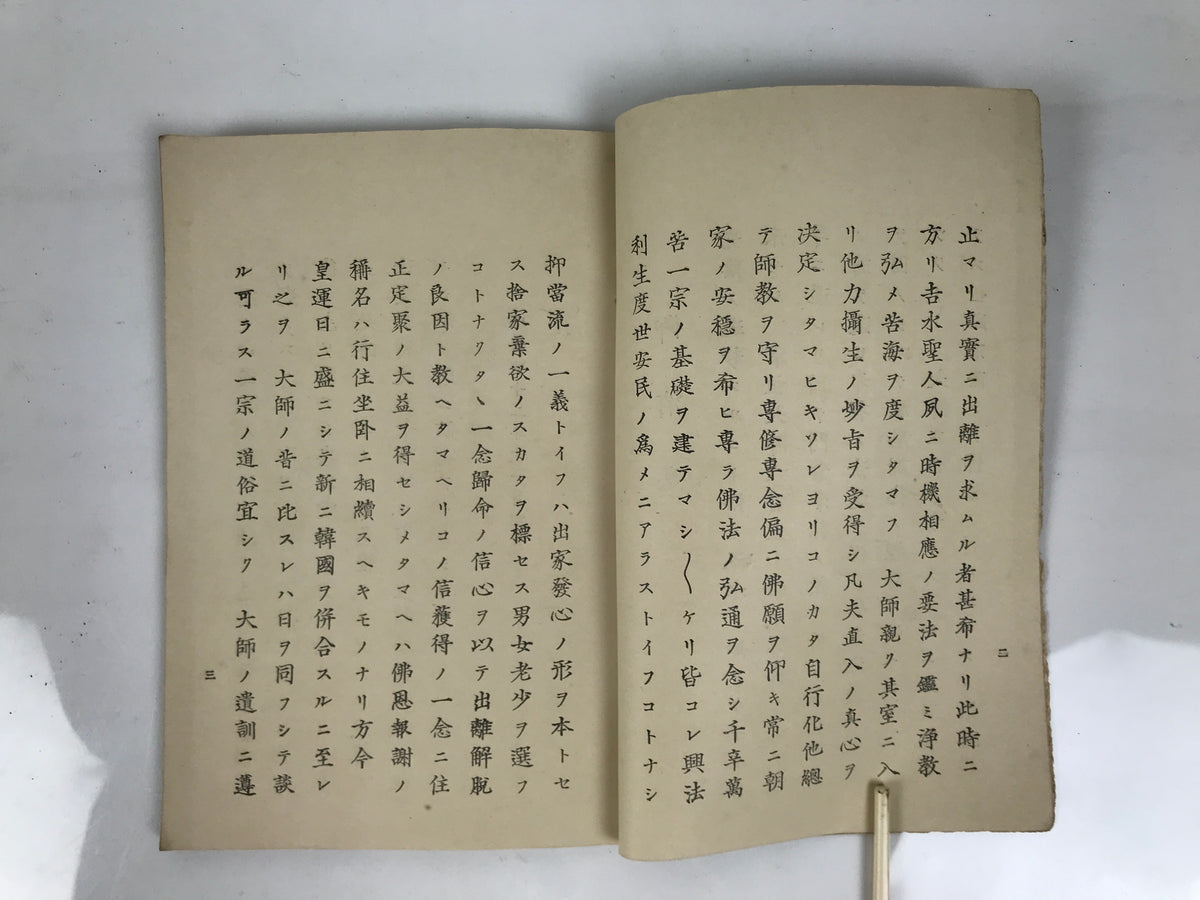 止マリ真實ニ出離ヲ求ムル者甚布ナリ此時ニ
方リ吉水聖人夙ニ時機相應ノ要法ヲ鑑ミ浄教
ヲ弘メ苦海ヲ度シタマフ 大師親ク其室ニ入
リ他力攝生ノ妙旨ヲ受得シ凡夫直入ノ真心ヲ
决定シタマヒキソレヨリコノカタ自行化他總
テ師教ヲ守リ専修専念偏ニ佛願ヲ仰キ常ニ朝
家ノ安穏ヲ布ヒ専ラ佛法ノ弘通ヲ念シ千辛萬
苦一宗ノ基礎ヲ建テマシ〱ケリ皆コレ興法
利生度世安民ノ為メニアラストイフコトナシ
二
抑當流ノ一義トイフハ出家發心ノ形ヲ本トセ
ス捨家棄欲ノスカタヲ標セス男女老少ヲ選フ
コトナクタヽ一念歸命ノ信心ヲ以テ出離解脱
ノ良因ト教ヘタマヘリコノ信獲得ノ一念ニ住
正定聚ノ大益ヲ得セシメタマヘハ佛恩報謝ノ
稱名ハ行住坐卧ニ相續スヘキモノナリ方今
皇運日ニ盛ニシテ新ニ韓國ヲ併合スルニ至レ
リ之ヲ 大師ノ昔ニ比スレハ日ヲ同フシテ談
ル可ラス一宗ノ道俗宜シク 大師ノ遺訓ニ遵
三